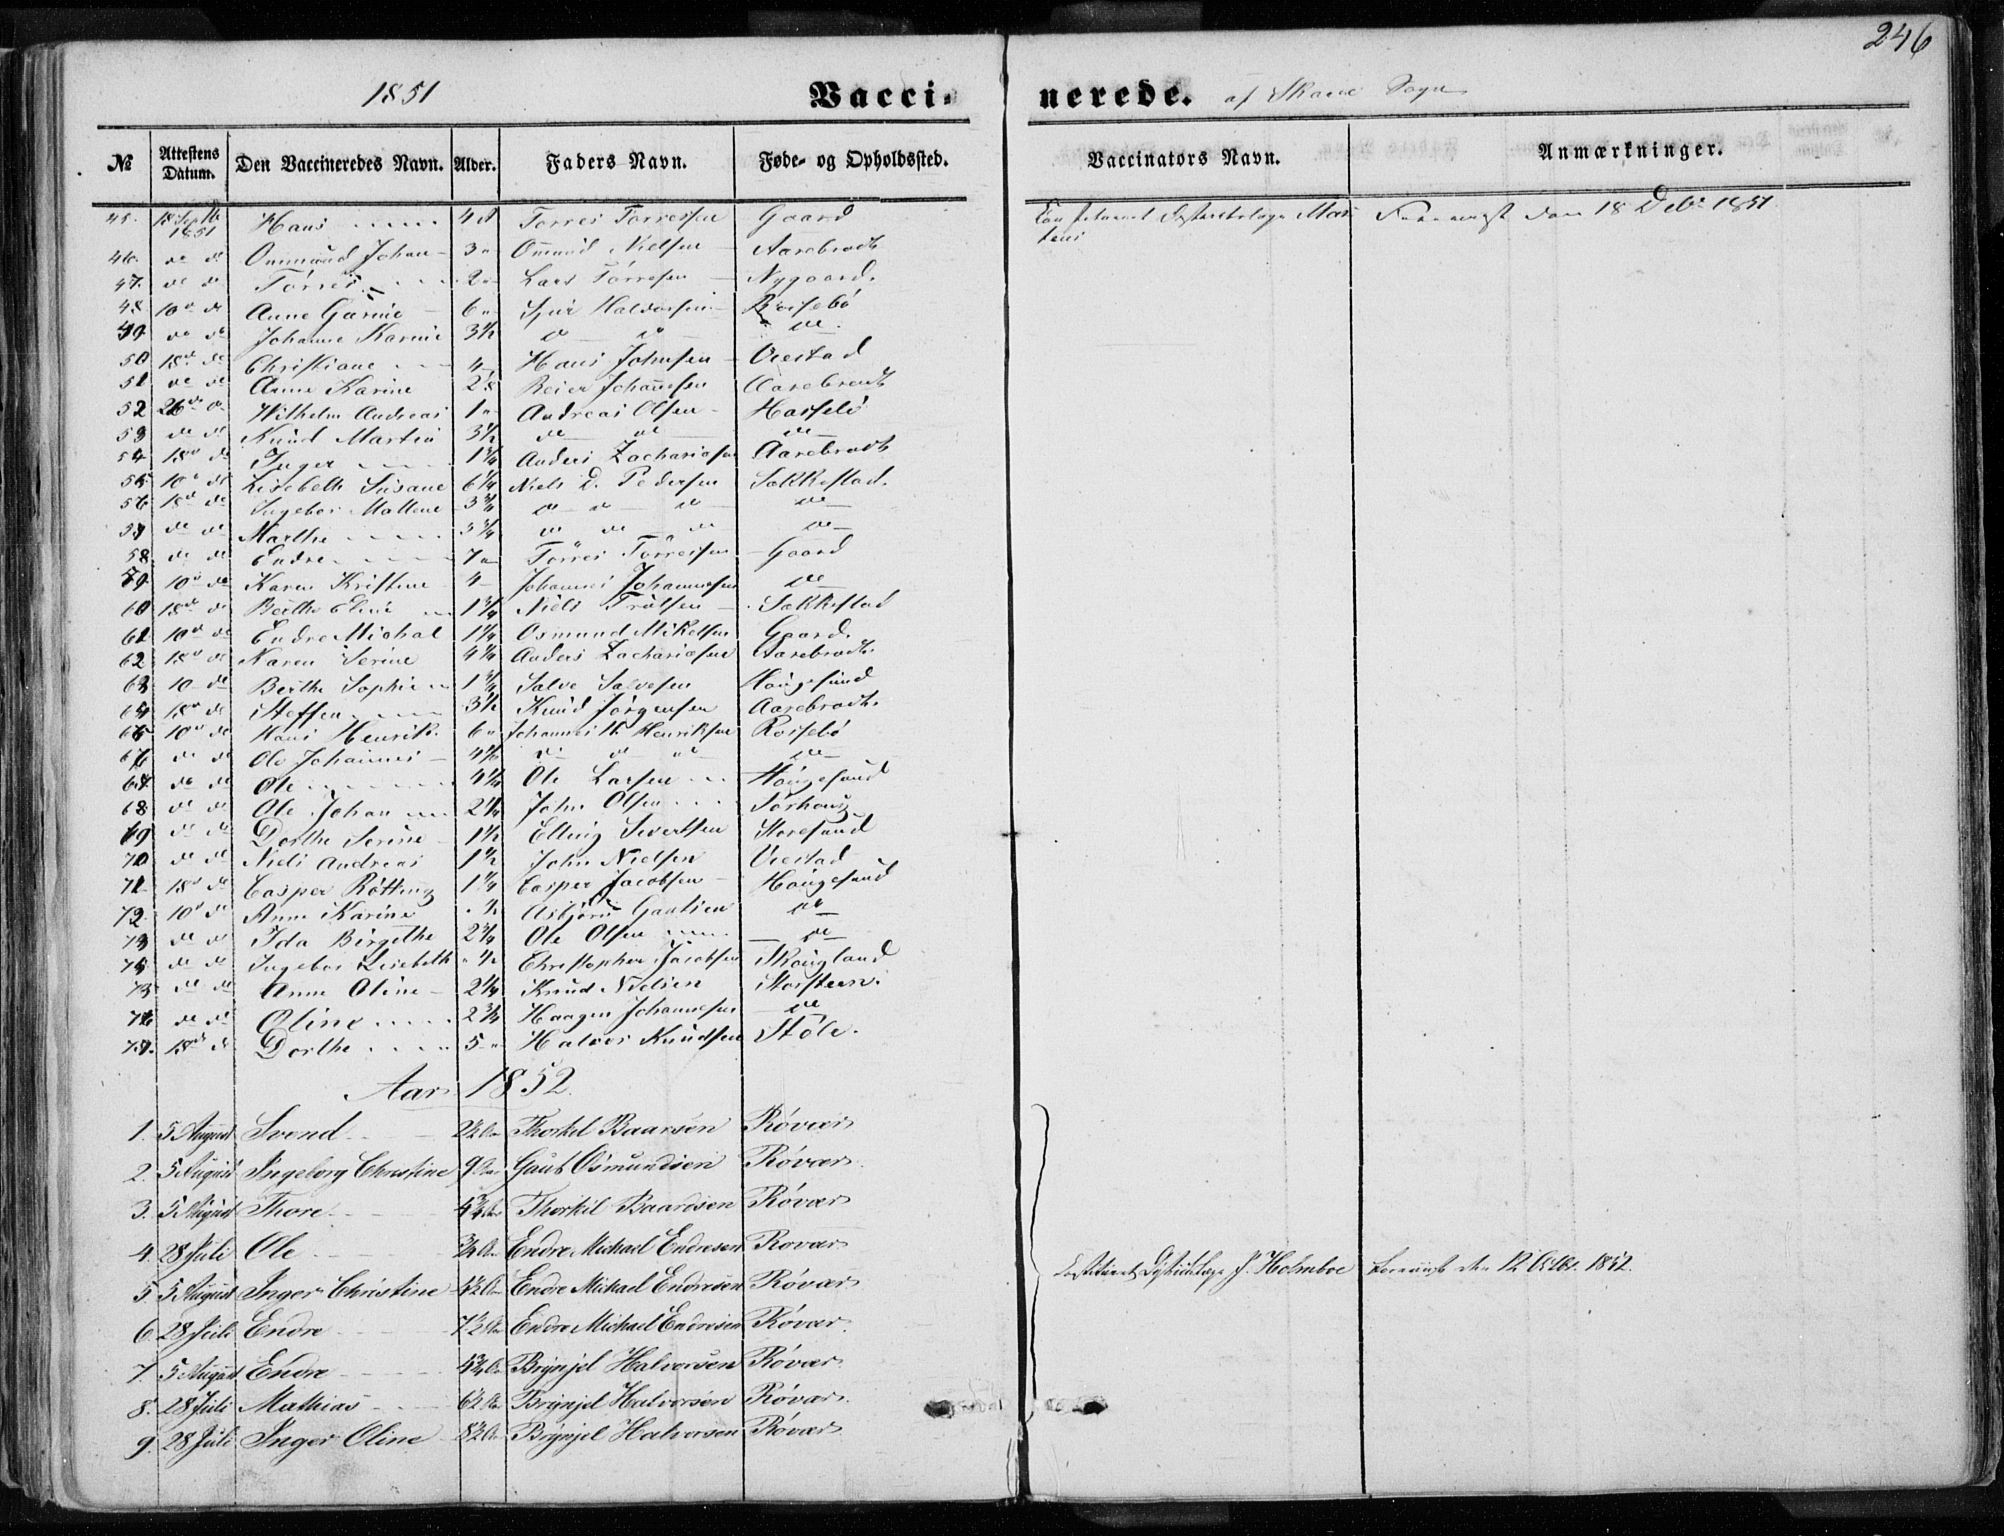 246
1851 Vaccinerede. af Skaare Sogn
№ Attestens Datum. Den Vaccineredes Navn. Alder. Faders Navn. Føde- og Opholdssted. Vaccinators Navn. Anmærkninger.
45. 18 Septb 1851 Hans 4 Torres Torresen Gaard Den 18 Decbr 1851
46. do do Ommund Johan 3 " Ommund Nielsen Aarebrodt
47. do do Törres 2 " Lars Törresen Nygaard.
48. 10 do Anne Gurine 6 " Sjur Haldorsen Rossebö
49. do do Johanne Karine 3½ do do do
50 18 do Christiane 4 Hans Johnsen Vestad
51 do do Anne Karine 2 Reier Johannesen Aarebrodt
52 26 do Wilhelm Andreas 1 " Andreas Olsen Hasselö
53 do do Knud Martin 3½ do do do
54 18 do Inger 1¾ Anders Zachariasen Aarebrodt
55 10 do Lisebeth Susane 6¼ Niels D. Pedersen Sakkestad.
56 18 do Ingebor Mallene 3¾ do do do do
57 do do Marthe 3¾ do do do do
58. do do Endre 7 " Törres Törresen Gaard
59 10 do Karen Kristine 4 Johannes Johannesen do
60 18 do Berthe Eline 1¾ Niels Trulsen Sakkestad
61 10 do Endre Michal 1¼ Osmund Mikelsen Gaard.
62 18 do Karen Serine 4¼ Anders Zachariasen Aarebrodt.
63 10 do Berthe Sophie 1¾ Salve Salvesen Haugesund
64 18 do Steffen 3½ Knud Jörgensen Aarebrodt.
65 10 do Hans Henrik 6 " Johannes H. Henriksen Rossebö
66 do do Ole Johannes 4½ do do do do
67 do do Ole 4¼ Ole Larsen Haugesund
68 do do Ole Johan 2¼ John Olsen Sörhaug
69 do do Dorthe Serine 1½ Elling Sivertsen Storesund
70 do do Niels Andreas 1½ John Nielsen Vestad
71 18 do Casper Rötting 1¼ Casper Jacobsen Haugesund
72. 10 do Anne Karine ½ Asbjörn Gautsen do
73 do do Ida Birgithe 2¾ Ole Olsen do
74 do do Ingebor Lisebeth " ½ Christopher Jacobsen Skougland
75 do do Anne Oline 2¼ Knud Nielsen Storsteen.
76 do do Oline 2¾ Haagen Johannesen do
77. 18 do Dorthe 5 " Halvor Knudsen Stöle.
Aar 1852.
1. 5 August Svend 2½ Thorkel Baarsen Rövær
2. 5 August Ingeborg Christine 9 Gaut Osmundsen Rövær.
3. 5 August Thore 4¾ Thorkil Baardsen Rövær
4. 28 Juli Ole ¾ Endre Michael Endresen Rovær Constitueret Districtslæge J. Holmboe Foreviist den 12 Octbr. 1852.
5 5 August Inger Christine 4½ Endre Mickael Endresen Rövær
6 28 Juli Endre 7½ Endre Michael Endresen Rövær.
7. 5 August Endre 4¾ Brynjel Halvorsen Rövær.
8. 28 Juli Mathias 6½ Brynjel Halvorsen Rövær.
9. 28 Juli Inger Oline 8½ Brynjel Halvorsen Rövær